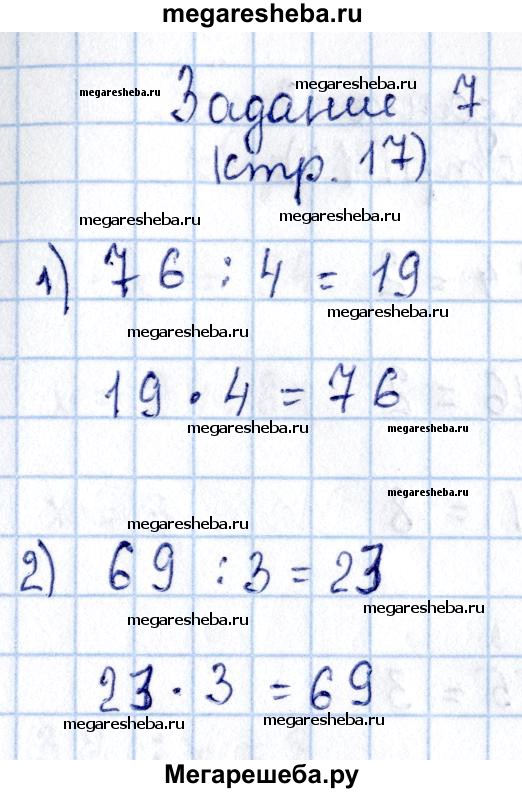 megaresheba.ru
megaresheba.ru
megaresheba.ru
Задание 7
(стр. 17)
megaresheba.ru
megaresheba.ru
1) 76 : 4 = 19
megaresheba.ru
megaresheba.ru
19 · 4 = 76
megaresheba.ru
megaresheba.ru
megaresheba.ru
megaresheba.ru
2) 69 : 3 = 23
megaresheba.ru
megaresheba.ru
23 · 3 = 69
megaresheba.ru
megaresheba.ru
Мегарешеба.ру